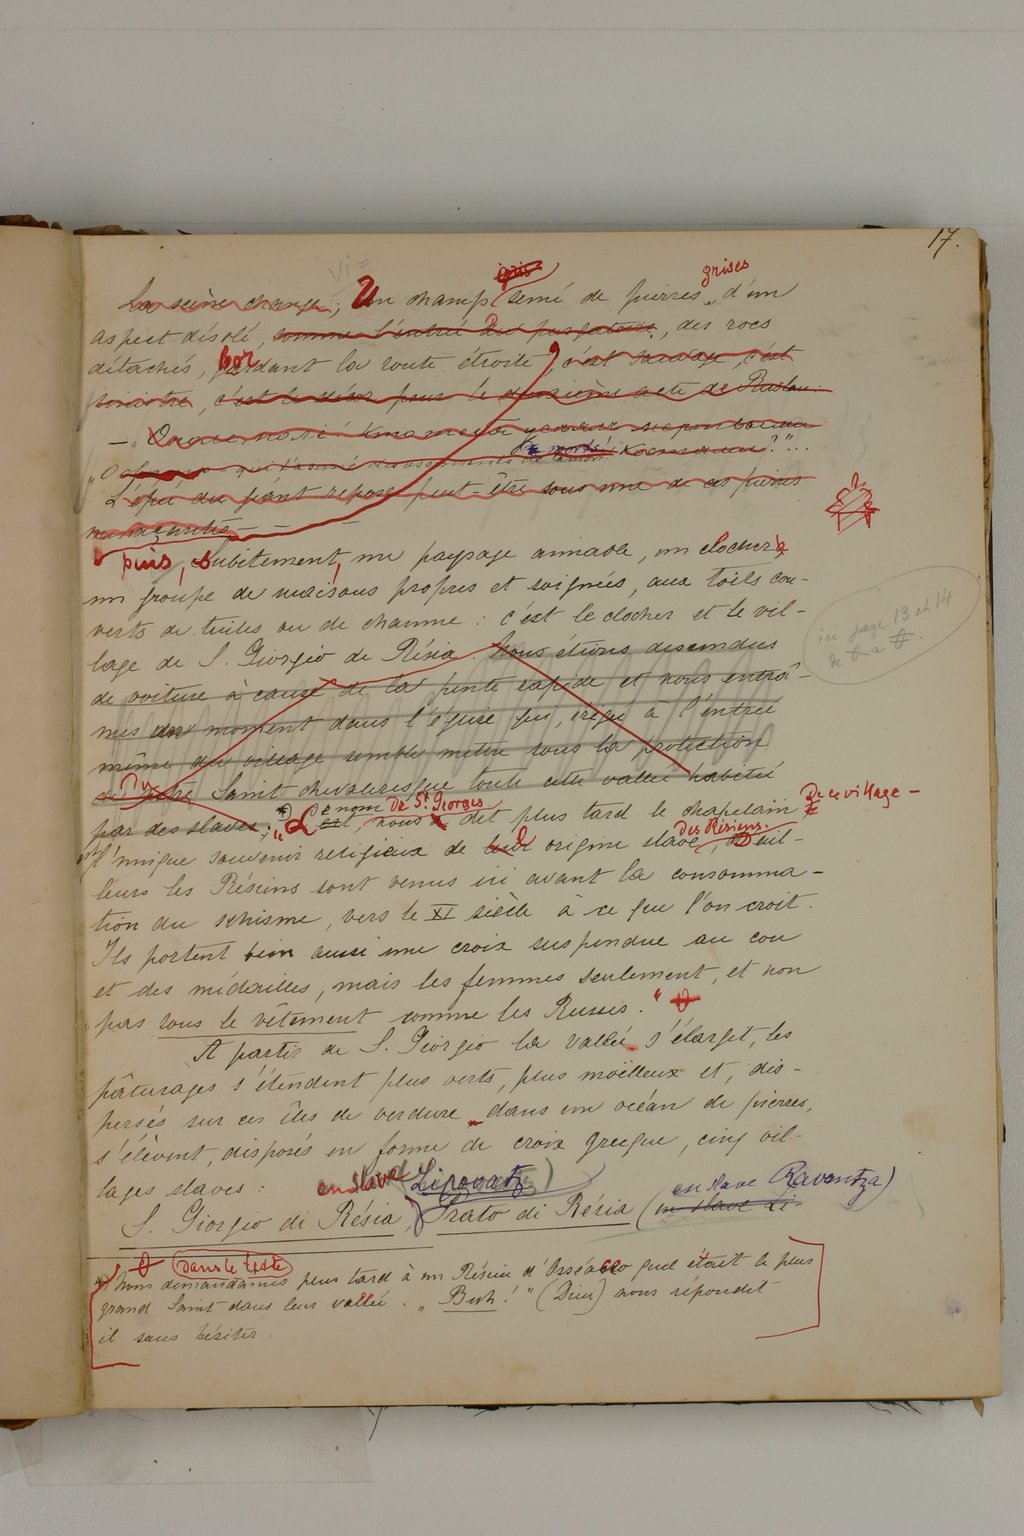 17.
gris
grises
La scène change; Un champ semé de pierres, d'un
aspect désolé, comme l'entrée du purgatoire, des rocs
détachés, bordant la route étroite, c'est sauvage, c'est
sinistre, c'est le décor pour le deuxième acte de Ruslan:
la mort
L'épée du géant repose peut-être sous une de ces pierres
puis, subitement, un paysage aimable, un clocher
un groupe de maisons propres et soignées, aux toits cou-
verts de tuiles ou de chaume: c'est le clocher et le vil-
ici page 13 et 14
lage de S. Giorgio de Résia. Nous étions descendus
de voiture à cause de la pente rapide et nous entrâ-
mes un moment dans l'église qui, érigée à l'entrée
même du village semble mettre sous la protection
du Saint chevaleresque toute cette vallée habitée
Ce nom De St. Georges
De ce village –
par des slaves; "est, nous dit plus tard le chapelain
des Résiens.
l'unique souvenir religieux de leur origine slave, D'ail-
leurs les Résiens sont venus ici avant la consomma-
tion du schisme, vers le XI siècle à ce que l'on croit.
Ils portent bien aussi une croix suspendue au cou
et des médailles, mais les femmes seulement, et non
pas sous le vêtement comme les Russes."
A partir de S. Giorgio la vallée s'élargit, les
pâturages s'étendent plus verts, plus moëlleux et, dis-
persés sur ces îles de verdure dans un océan de pierres,
s'élèvent, disposés en forme de croix grecque, cinq vil-
lages slaves:
en slave Lipovatz)
en slave Raventza)
S. Giorgio di Résia, Prato di Résia (en slave Li-
Dans le texte
*) Nous demandames plus tard à un Résien d'Osséacco quel était le plus
grand Saint dans leur vallée. „Buh!" (Dieu) nous répondit
il sans hésiter.